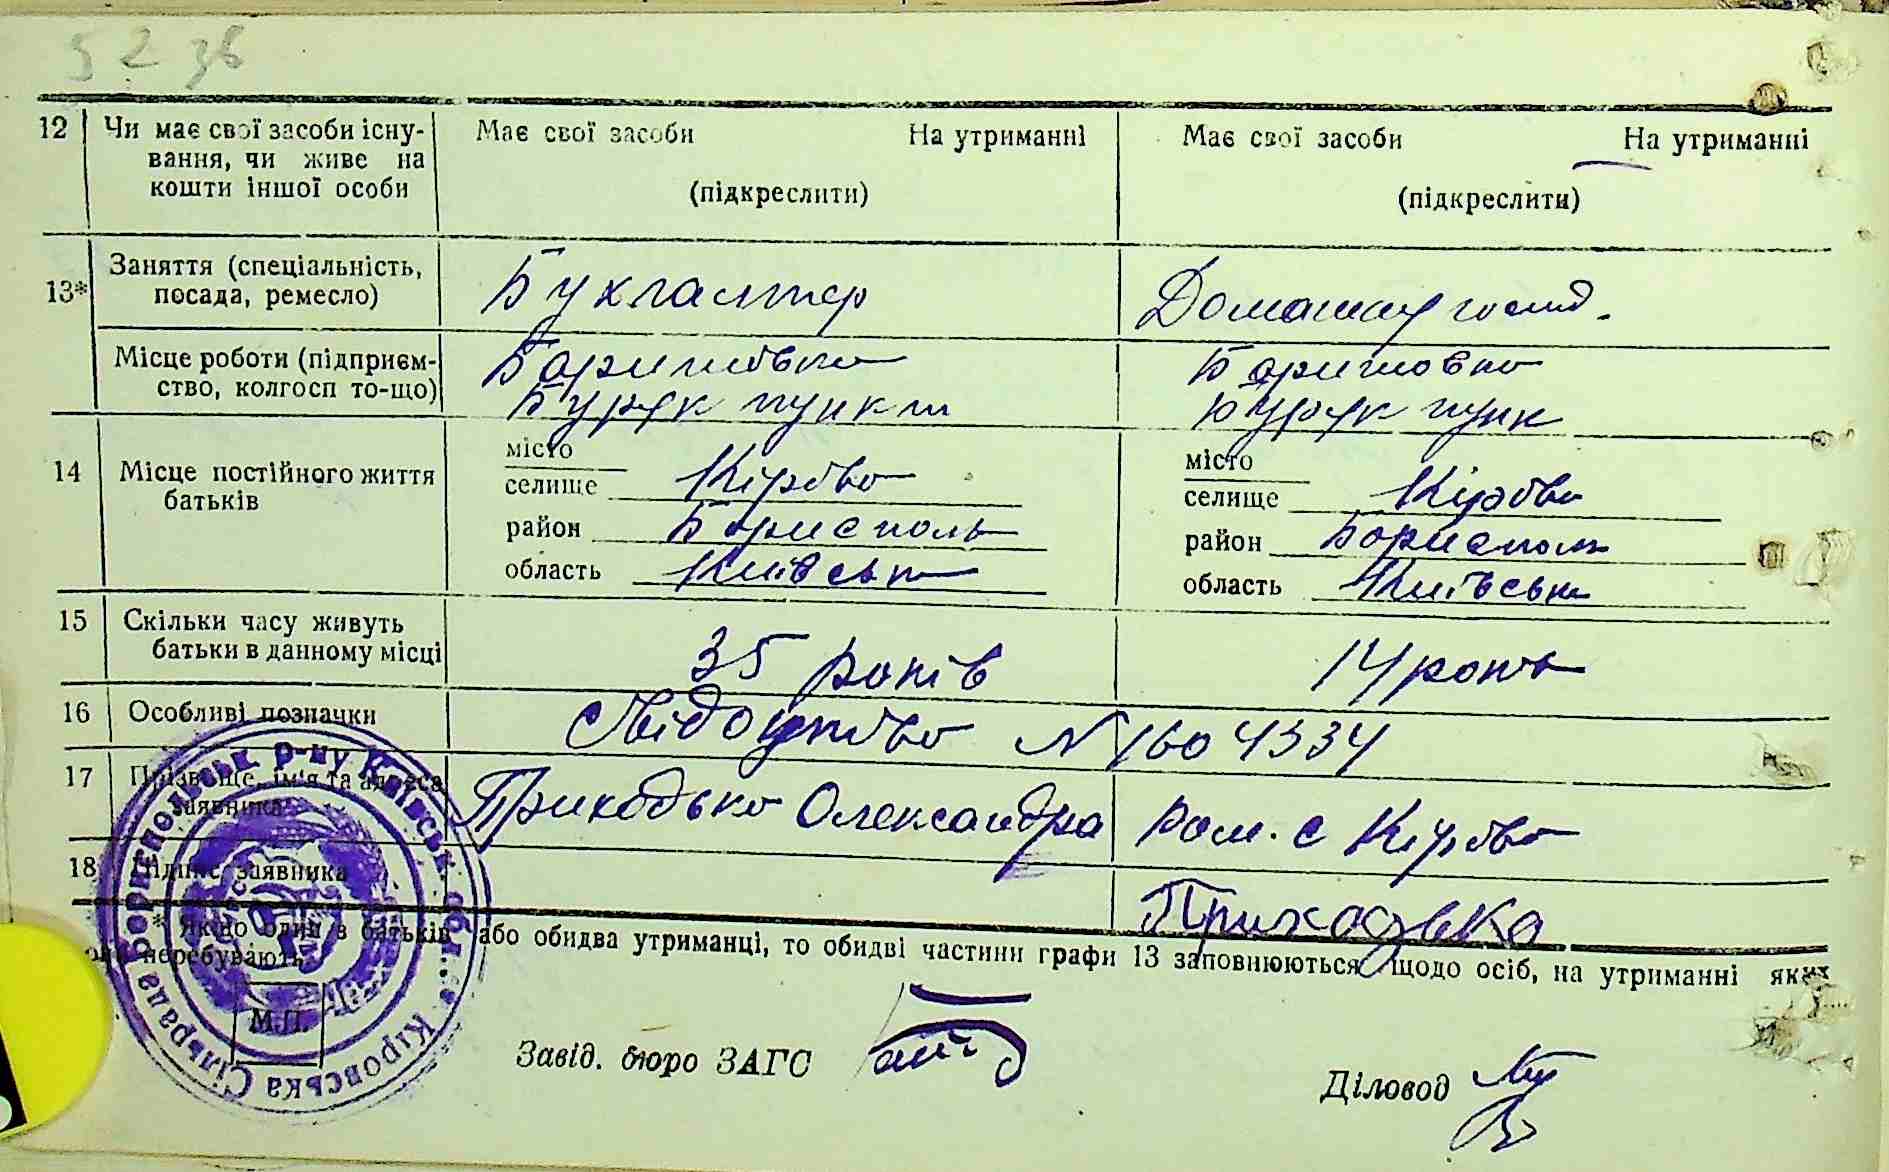 5 2 36
12 Чи має свої засоби існу- Має свої засоби На утриманні Має свої засоби На утриманні
вання, чи живе на
кошти іншої особи (підкреслити) (підкреслити)
13* Заняття (спеціальність, Бухгалтер Домашнє госпд.
посада, ремесло)
Місце роботи (підприєм- Баришівка Баришовка
ство, колгосп то-що) Буряк пункт Буряк пунк
14 Місце постійного життя місто місто
батьків селище Кірово селище Кірово
район Бориспол район Бориспол
область Київська область Київська
15 Скільки часу живуть 35 років 14 років
батьки в данному місці
16 Особливі позначки Свідоцтво N 1604334
17 Прізвище, ім'я та адреса Приходько Олександра с Кірово
заявника
18 Підпис заявника Приходька
* Якщо один з батьків або обидва утриманці, то обидві частини графи 13 заповнюються щодо осіб, на утриманні яких
перебувають
М.П.
Завід. бюро ЗАГС
Діловод
Кіровська Сільрада Бориспольськ. р-ну Київськ. обл.